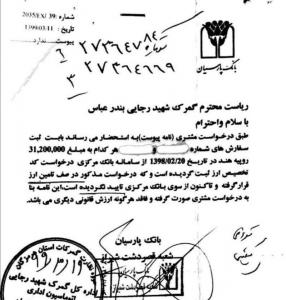 شماره :39 /2035/EX
تاریخ : 1399/03/11
پیوست : ندارد
۲۷۳۶۴۷۸۴
۲۷۳۶۴۶۶۹
بانک پارسیان
ریاست محترم گمرک شهید رجایی بندر عباس
با سلام واحترام
طبق درخواست مشتری (نامه پیوست)به استحضار می رساند بابت ثبت
سفارش های شماره هر کدام به مبلغ 31,200,000
روپیه هند در تاریخ 1398/02/20 از سامانه بانک مرکزی درخواست کد
تخصیص ارز ثبت گردیده است که درخواست مذکور در صف تامین ارز
قرارگرفته و تاکنون از سوی بانک مرکزی تایید نگردیده است.این نامه بنا
به درخواست مشتری صورت گرفته و فاقد هرگونه ارزش قانونی دیگری می باشد.
بانک پارسیان
شعبه قصردشت شیراز
اداره کل گمرک شهید رجایی
اتوماسیون اداری